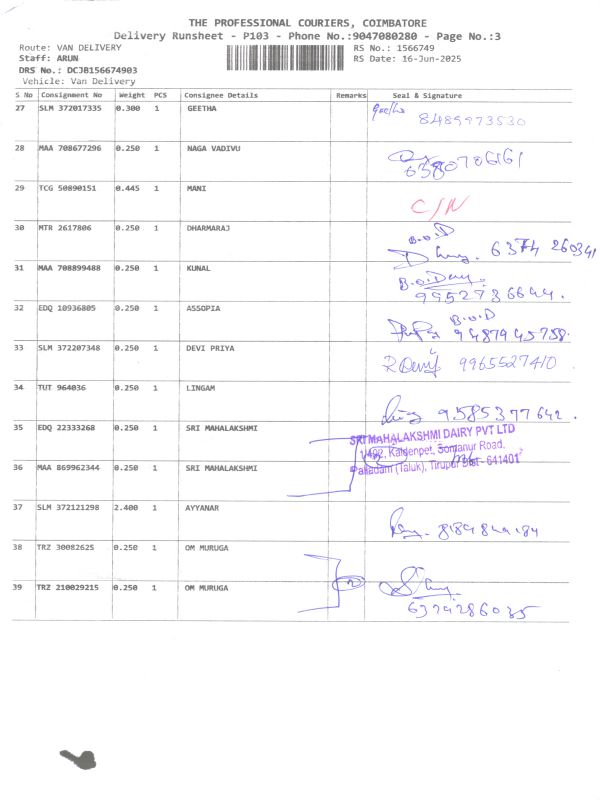 THE PROFESSIONAL COURIERS, COIMBATORE
Delivery Runsheet - P103 - Phone No.:9047080280 - Page No.:3
Route: VAN DELIVERY RS No.: 1566749
Staff: ARUN RS Date: 16-Jun-2025
DRS No.: DCJB156674903
Vehicle: Van Delivery
S No Consignment No Weight PCS Consignee Details Remarks Seal & Signature
27 SLM 372017335 0.300 1 GEETHA Geetha
8489973530
28 MAA 708677296 0.250 1 NAGA VADIVU
6380706161
29 TCG 50890151 0.445 1 MANI
C/N
30 MTR 2617806 0.250 1 DHARMARAJ B.O.D
6374 260341
31 MAA 708899488 0.250 1 KUNAL B.O.D
9952936644.
32 EDQ 10936805 0.250 1 ASSOPIA B.O.D
9487945758
33 SLM 372207348 0.250 1 DEVI PRIYA
R Devi 9965527410
34 TUT 964036 0.250 1 LINGAM
9585377642.
35 EDQ 22333268 0.250 1 SRI MAHALAKSHMI
SRI MAHALAKSHMI DAIRY PVT LTD
Road,
36 MAA 869962344 0.250 1 SRI MAHALAKSHMI
Palladam (Taluk), Tirupur Dist - 641401
37 SLM 372121298 2.400 1 AYYANAR
38 TRZ 30082625 0.250 1 OM MURUGA
39 TRZ 210029215 0.250 1 OM MURUGA
6374286035